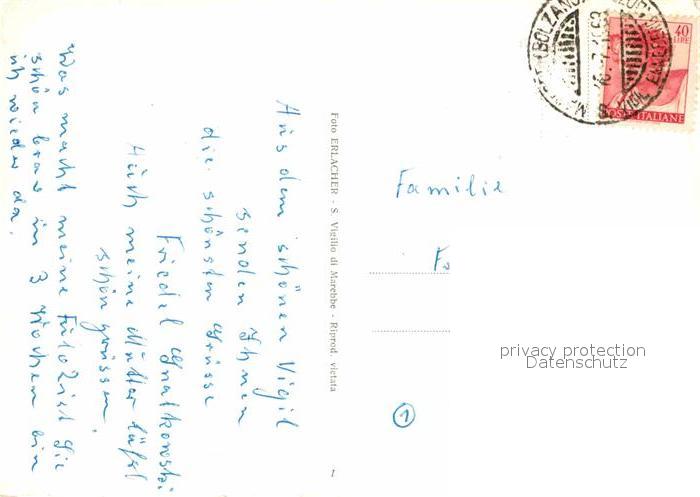 Aus dem schönen Vigil
senden Ihnen
die schönsten Grüsse
Friedel Gnatkowski
Auch meine Mutter läßt
schön grüssen.
Was macht meine
schön brav in 3 Wochen bin
ich wieder da.
Foto ERLACHER - S. Vigilio di Marebbe - Riprod. vietata
I
40
LIRE
POSTE ITALIANE
(BOLZANO)
Familie
Fo
privacy protection
Datenschutz
1